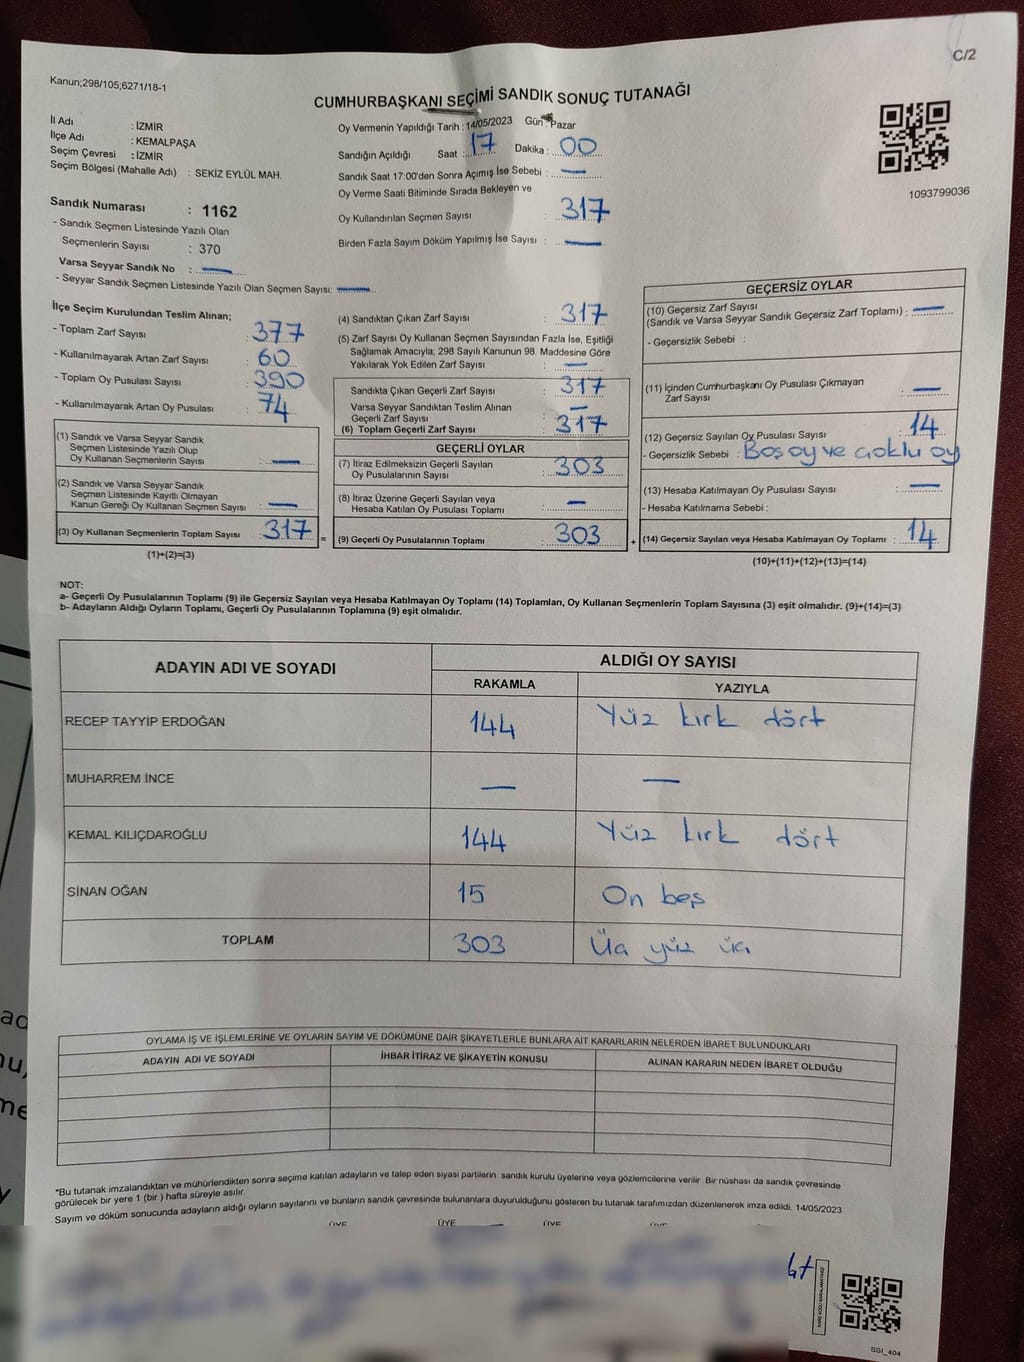 C/2
Kanun;298/105;6271/18-1
CUMHURBAŞKANI SEÇİMİ SANDIK SONUÇ TUTANAĞI
İl Adı : İZMİR
İlçe Adı : KEMALPAŞA
Seçim Çevresi : İZMİR
Seçim Bölgesi (Mahalle Adı) : SEKİZ EYLÜL MAH.
Oy Vermenin Yapıldığı Tarih : 14/05/2023 Gün Pazar
Sandığın Açıldığı Saat : 17 Dakika : 00
Sandık Saat 17:00'den Sonra Açımış İse Sebebi : —
Oy Verme Saati Bitiminde Sırada Bekleyen ve
Oy Kullandırılan Seçmen Sayısı : 317
Birden Fazla Sayım Döküm Yapılmış İse Sayısı : —
1093799036
Sandık Numarası : 1162
- Sandık Seçmen Listesinde Yazılı Olan
Seçmenlerin Sayısı : 370
Varsa Seyyar Sandık No : —
- Seyyar Sandık Seçmen Listesinde Yazılı Olan Seçmen Sayısı: —
İlçe Seçim Kurulundan Teslim Alınan;
- Toplam Zarf Sayısı : 377
- Kullanılmayarak Artan Zarf Sayısı : 60
- Toplam Oy Pusulası Sayısı : 390
- Kullanılmayarak Artan Oy Pusulası : 74
(1) Sandık ve Varsa Seyyar Sandık
Seçmen Listesinde Yazılı Olup
Oy Kullanan Seçmenlerin Sayısı : —
(2) Sandık ve Varsa Seyyar Sandık
Seçmen Listesinde Kayıtlı Olmayan
Kanun Gereği Oy Kullanan Seçmen Sayısı : —
(3) Oy Kullanan Seçmenlerin Toplam Sayısı : 317
(1)+(2)=(3)
(4) Sandıktan Çıkan Zarf Sayısı : 317
(5) Zarf Sayısı Oy Kullanan Seçmen Sayısından Fazla İse, Eşitliği
Sağlamak Amacıyla; 298 Sayılı Kanunun 98. Maddesine Göre
Yakılarak Yok Edilen Zarf Sayısı : —
Sandıkta Çıkan Geçerli Zarf Sayısı : 317
Varsa Seyyar Sandıktan Teslim Alınan
Geçerli Zarf Sayısı : —
(6) Toplam Geçerli Zarf Sayısı : 317
GEÇERLİ OYLAR
(7) İtiraz Edilmeksizin Geçerli Sayılan
Oy Pusulasının Sayısı : 303
(8) İtiraz Üzerine Geçerli Sayılan veya
Hesaba Katılan Oy Pusulası Toplamı : —
= (9) Geçerli Oy Pusulalarının Toplamı : 303
GEÇERSİZ OYLAR
(10) Geçersiz Zarf Sayısı
(Sandık ve Varsa Seyyar Sandık Geçersiz Zarf Toplamı) : —
- Geçersizlik Sebebi :
(11) İçinden Cumhurbaşkanı Oy Pusulası Çıkmayan
Zarf Sayısı : —
(12) Geçersiz Sayılan Oy Pusulası Sayısı : 14
- Geçersizlik Sebebi : Boş oy ve çoklu oy
(13) Hesaba Katılmayan Oy Pusulası Sayısı : —
- Hesaba Katılmama Sebebi :
+ (14) Geçersiz Sayılan veya Hesaba Katılmayan Oy Toplamı : 14
(10)+(11)+(12)+(13)=(14)
NOT:
a- Geçerli Oy Pusulalarının Toplamı (9) ile Geçersiz Sayılan veya Hesaba Katılmayan Oy Toplamı (14) Toplamları, Oy Kullanan Seçmenlerin Toplam Sayısına (3) eşit olmalıdır. (9)+(14)=(3)
b- Adayların Aldığı Oyların Toplamı, Geçerli Oy Pusulalarının Toplamına (9) eşit olmalıdır.
ADAYIN ADI VE SOYADI ALDIĞI OY SAYISI
RAKAMLA YAZIYLA
RECEP TAYYİP ERDOĞAN 144 Yüz kırk dört
MUHARREM İNCE — —
KEMAL KILIÇDAROĞLU 144 Yüz kırk dört
SİNAN OĞAN 15 On beş
TOPLAM 303 Üç yüz üç
OYLAMA İŞ VE İŞLEMLERİNE VE OYLARIN SAYIM VE DÖKÜMÜNE DAİR ŞİKAYETLERLE BUNLARA AİT KARARLARIN NELERDEN İBARET BULUNDUKLARI
ADAYIN ADI VE SOYADI İHBAR İTİRAZ VE ŞİKAYETİN KONUSU ALINAN KARARIN NEDEN İBARET OLDUĞU
*Bu tutanak imzalandıktan ve mühürlendikten sonra seçime katılan adayların ve talep eden siyasi partilerin sandık kurulu üyelerine veya gözlemcilerine verilir. Bir nüshası da sandık çevresinde
görülecek bir yere 1 (bir ) hafta süreyle asılır.
Sayım ve döküm sonucunda adayların aldığı oyların sayılarını ve bunların sandık çevresinde bulunanlara duyurulduğunu gösteren bu tutanak tarafımızdan düzenlenerek imza edildi. 14/05/2023
ÜYE ÜYE ÜYE
SSI_404